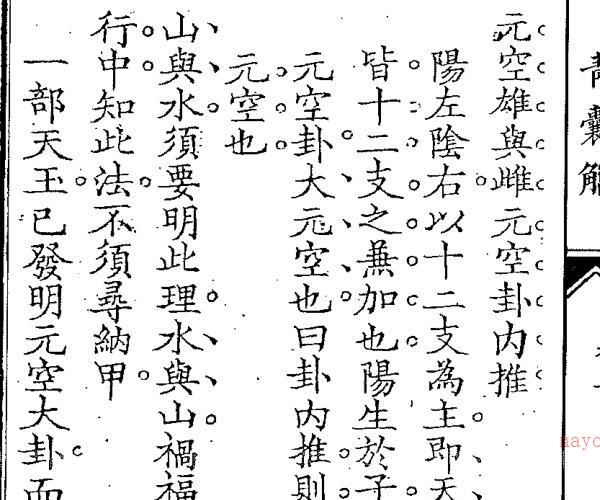 青囊解
元空雄與雌元空卦內推
陽左陰右以十二支為主即天
皆十二支之兼加也陽生於子
元空卦大元空也曰卦內推則
元空也
山與水須要明此理水與山禍福
行中知此法不須尋納甲
一部天玉已發明元空大卦而
nayc